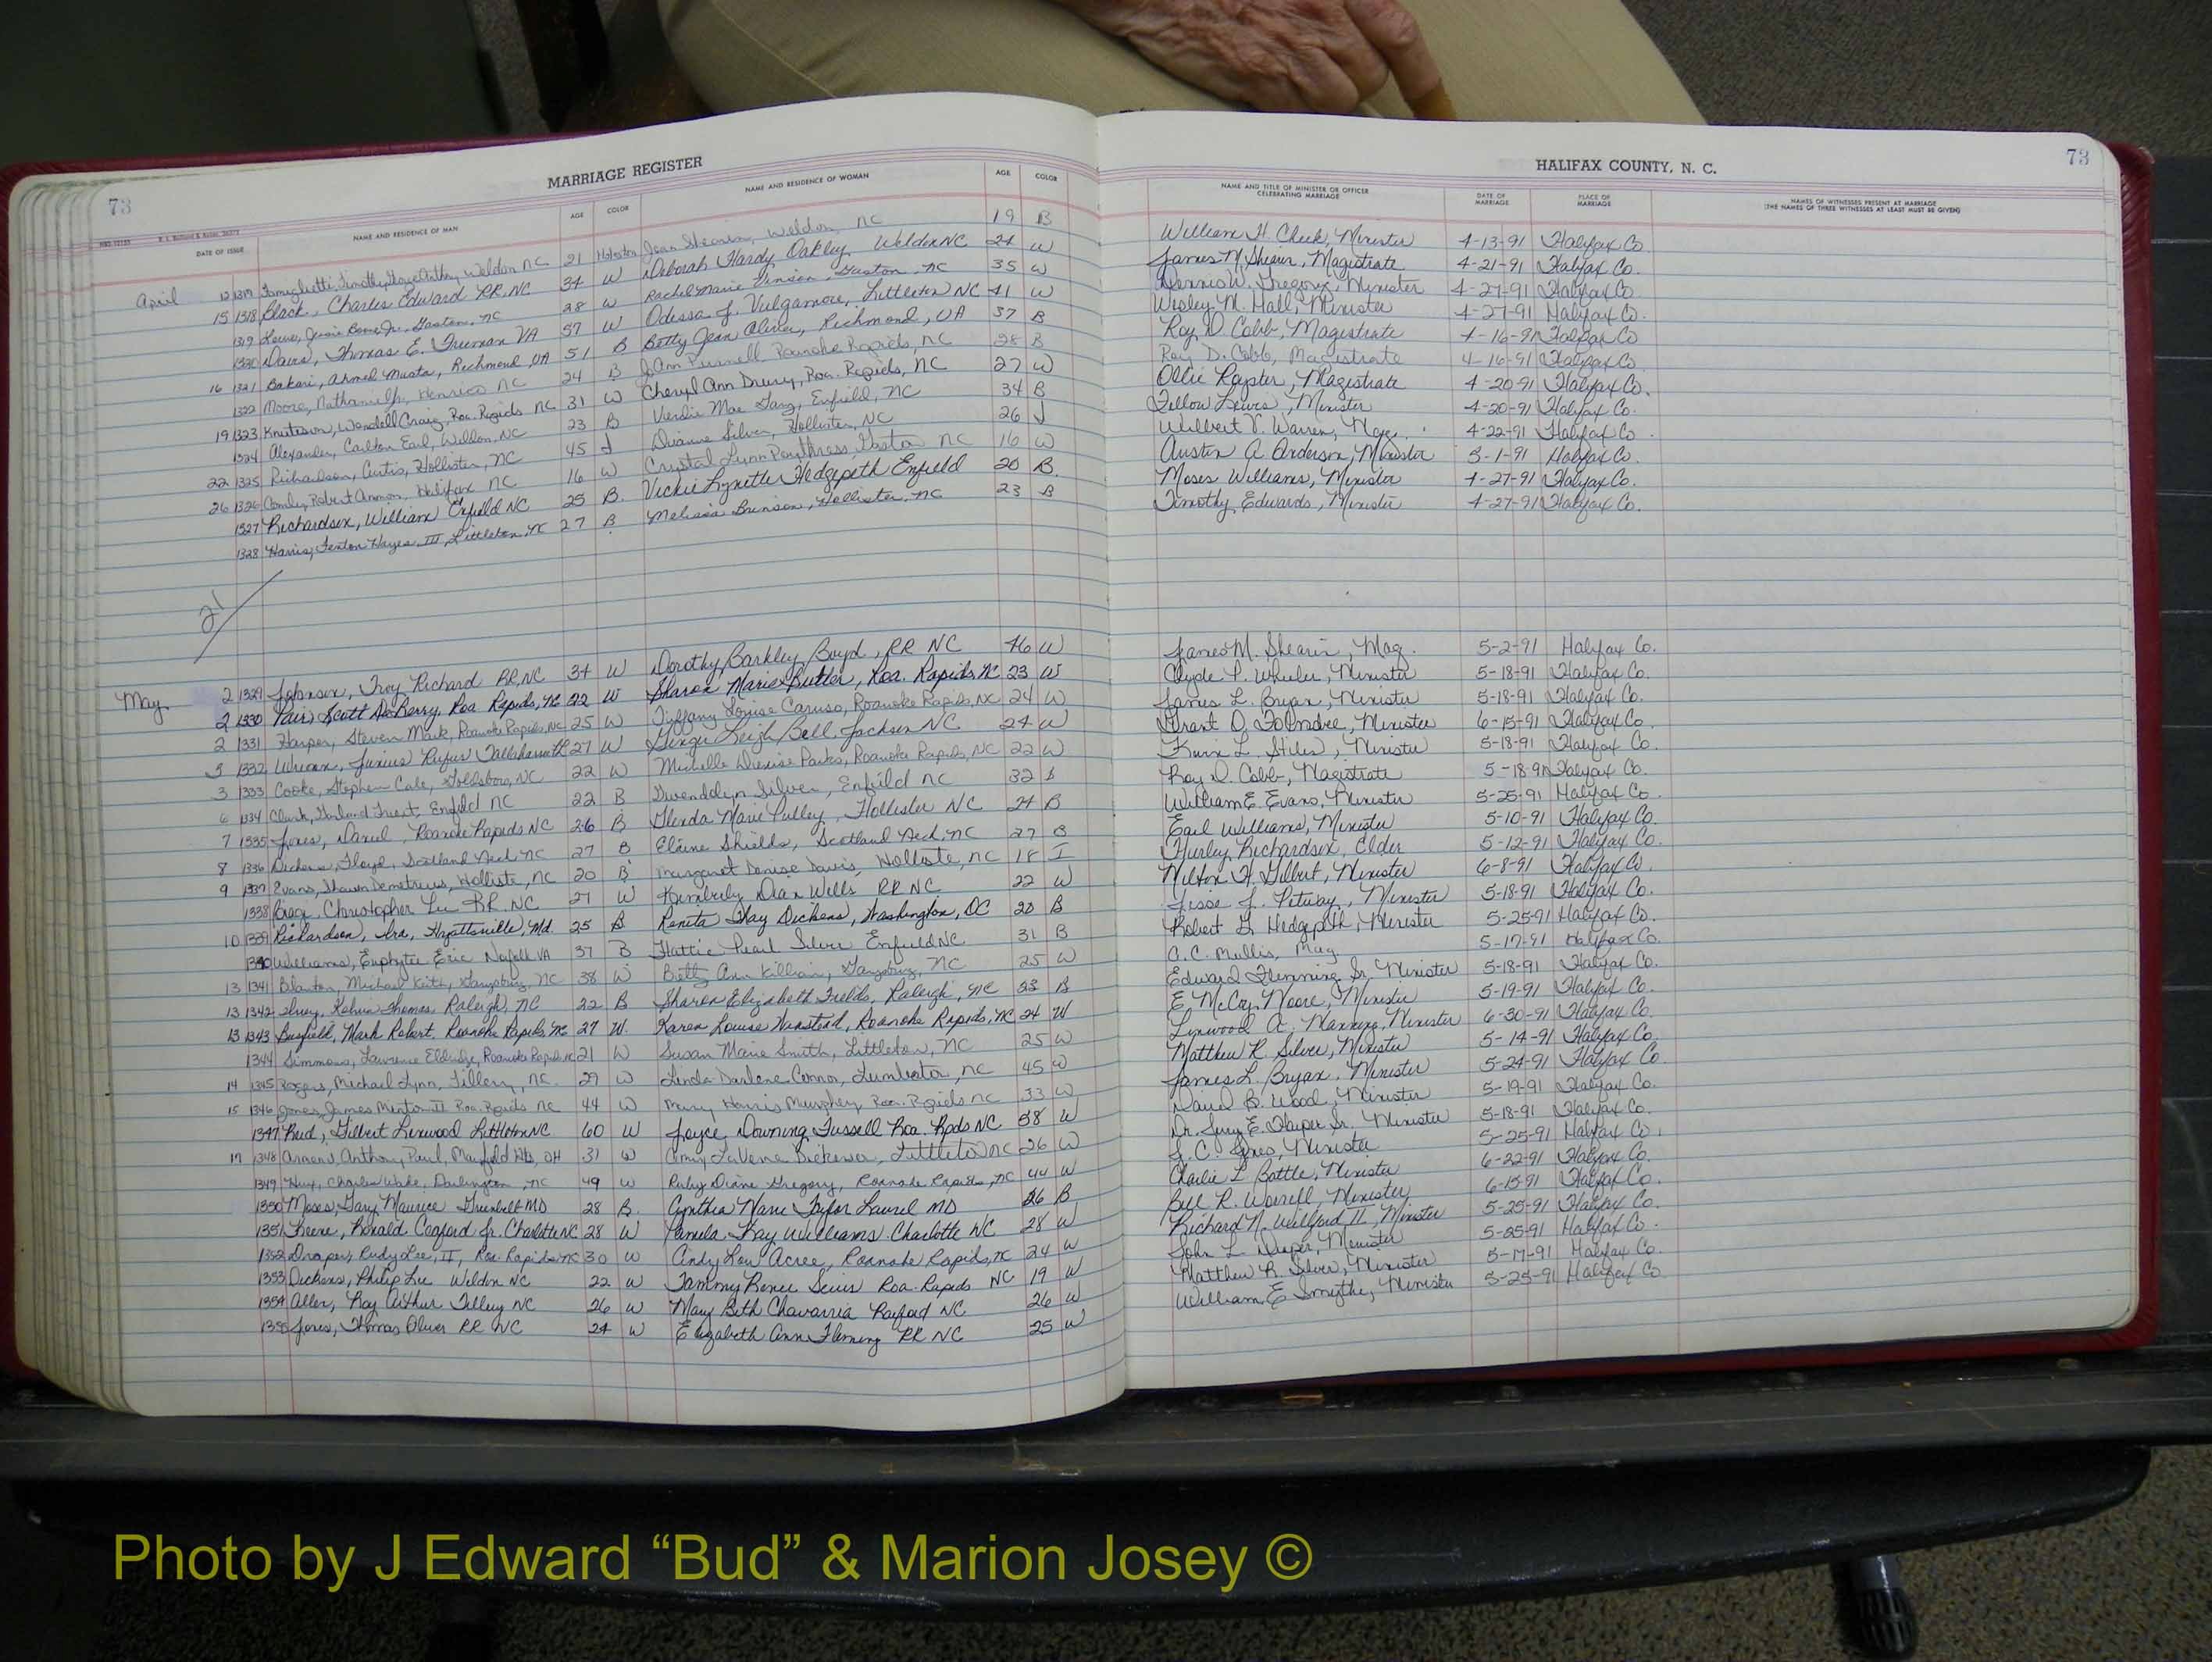 73
MARRIAGE REGISTER
DATE OF ISSUE NAME AND RESIDENCE OF MAN AGE COLOR NAME AND RESIDENCE OF WOMAN AGE COLOR
April 12 Weldon NC 21 Jean Weldon, NC 19 B
15 1318 Black, Charles Edward RR. NC 34 W Deborah Hardy Oakley, Weldon NC 24 W
1319 Gaston, NC 28 W Rachel Marie Vinson, Gaston, NC 35 W
1320 Thomas E. Truman VA 57 W Odessa J. Vulgamore, Littleton NC 41 W
16 1321 Bakari, Ahmed Richmond, VA 51 B Betty Jean Oliver, Richmond, VA 37 B
1322 Moore, Nathaniel Jr. Henrico NC 24 B Roanoke Rapids, NC 28 B
19 1323 Wendell Craig, Roa. Rapids NC 31 W Cheryl Ann Drury, Roa. Rapids, NC 27 W
1324 Alexander, Carlton Earl, Weldon, NC 23 B Verdie Mae Enfield, NC 34 B
22 1325 Richardson, Curtis, Hollister, NC 45 Dianne Silver, Hollister, NC 26
26 1326 Robert Halifax NC 16 W Crystal Lynn Poythress, NC 16 W
1327 Richardson, William Enfield NC 25 B. Vickie Lynette Hedgepeth Enfield 20 B
1328 Harris, Fenton Hayes III, Littleton, NC 27 B Melissa Brinson, Hollister, NC 23 B
21
May 2 1329 Johnson, Troy Richard RR, NC 34 W Dorothy Barkley Boyd, RR NC 46 W
2 1330 Pair, Scott Roa Rapids, NC 22 W Sharon Marie Butler, Roa. Rapids, NC 23 W
2 1331 Harper, Steven Mark, Roanoke Rapids, NC 25 W Tiffany Louise Caruso, Roanoke Rapids, NC 24 W
3 1332 Junius Rufus 27 W Ginger Leigh Bell, Jackson NC 24 W
3 1333 Cooke, Stephen Cale, Goldsboro, NC 22 W Michelle Denise Parks, Roanoke Rapids, NC 22 W
6 1334 Clark, Garland Enfield NC 22 B Gwendolyn Silver, Enfield NC 32
7 1335 Jones, Daniel, Roanoke Rapids NC 26 B Glenda Marie Pulley, Hollister NC 24 B
8 1336 Dickens, Floyd, Scotland Neck NC 27 B Elaine Shields, Scotland Neck, NC 27 B
9 1337 Evans, Shawn Demetrius, Hollister, NC 20 B Margaret Denise Davis, Hollister, NC 18 I
1338 Christopher Lee RR. NC 27 W Kimberly Dian Wells RR NC 22 W
10 1339 Richardson, Ira, Hyattsville, Md. 25 B Renita Kay Dickens, Washington, DC 20 B
1340 Williams, Eric Norfolk VA 37 B Hattie Pearl Silver Enfield NC 31 B
13 1341 Blanton, Michael Keith, Garysburg, NC 38 W Betty Ann Killian, Garysburg, NC 25 W
13 1342 Kelvin Thomas, Raleigh, NC 22 B Sharon Elizabeth Fields, Raleigh, NC 23 B
13 1343 Mark Robert, Roanoke Rapids, NC 27 W. Karen Louise Roanoke Rapids, NC 24 W
1344 Simmons, Lawrence Eldridge, Roanoke Rapids NC 21 W Susan Marie Smith, Littleton, NC 25 W
14 1345 Rogers, Michael Lynn, Tillery, NC 29 W Linda Darlene Connor, Lumberton, NC 45 W
15 1346 Jones, James Minton II Roa. Rapids NC 44 W Mary Harris Murphey Roa. Rapids NC 33 W
1347 Reid, Gilbert Linwood Littleton NC 60 W Joyce Downing Fussell Roa. Rpds NC 58 W
17 1348 Anthony Paul, OH 31 W Amy LaVerne Dickerson, Littleton NC 26 W
1349 Hux, Charles Wake, Darlington, NC 49 W Ruby Diane Gregory, Roanoke Rapids, NC 44 W
1350 Moses, Gary Maurice Greenbelt MD 28 B Cynthia Marie Taylor Laurel MD 26 B
1351 Keene, Ronald Jr. Charlotte NC 28 W Pamela Kay Williams Charlotte NC 28 W
1352 Draper, Rudy Lee, II, Roa. Rapids NC 30 W Cindy Lou Acree, Roanoke Rapids, NC 24 W
1353 Dickens, Philip Lee Weldon NC 22 W Tammy Renee Roa. Rapids NC 19 W
1354 Allen, Roy Arthur Tillery NC 26 W Mary Beth Chavarria Raeford NC 26 W
1355 Jones, Thomas Oliver RR NC 24 W Elizabeth Ann Fleming RR NC 25 W
73
HALIFAX COUNTY, N. C.
NAME AND TITLE OF MINISTER OR OFFICER CELEBRATING MARRIAGE DATE OF MARRIAGE PLACE OF MARRIAGE NAMES OF WITNESSES PRESENT AT MARRIAGE (THE NAMES OF THREE WITNESSES AT LEAST MUST BE GIVEN)
William H. Cheek, Minister 4-13-91 Halifax Co
James M. Shearin, Magistrate 4-21-91 Halifax Co.
Dennis W. Gregory, Minister 4-27-91 Halifax Co
Wesley N. Hall, Minister 4-27-91 Halifax Co.
Roy D. Cobb, Magistrate 4-16-91 Halifax Co
Roy D. Cobb, Magistrate 4-16-91 Halifax Co
Ollie Rayster, Magistrate 4-20-91 Halifax Co.
Lewis, Minister 4-20-91 Halifax Co.
Wilbert V. Warren, Mag. 4-22-91 Halifax Co.
Austin A. Anderson, Minister 5-1-91 Halifax Co.
Moses Williams, Minister 4-27-91 Halifax Co.
Timothy Edwards, Minister 4-27-91 Halifax Co.
James M. Shearin, Mag. 5-2-91 Halifax Co.
Clyde P. Wheeler, Minister 5-18-91 Halifax Co.
James L. Bryan, Minister 5-18-91 Halifax Co.
Grant D. Minister 6-15-91 Halifax Co.
L. Stiles, Minister 5-18-91 Halifax Co.
Roy D. Cobb, Magistrate 5-18-91 Halifax Co.
William E. Evans, Minister 5-25-91 Halifax Co.
Earl Williams, Minister 5-10-91 Halifax Co.
Hurley Richardson, Elder 5-12-91 Halifax Co.
Milton H. Gilbert, Minister 6-8-91 Halifax Co.
Jesse J. Pitway, Minister 5-18-91 Halifax Co.
Robert G. Hedgepeth, Minister 5-25-91 Halifax Co.
C.C. Mullis, Mag 5-17-91 Halifax Co.
Edward Flemming Sr. Minister 5-18-91 Halifax Co.
E. McCoy Moore, Minister 5-19-91 Halifax Co.
Linwood A. Manning, Minister 6-30-91 Halifax Co.
Matthew R. Silver, Minister 5-14-91 Halifax Co.
James L. Bryan, Minister 5-24-91 Halifax Co.
David B. Wood, Minister 5-19-91 Halifax Co.
Dr. E. Harper Sr. Minister 5-18-91 Halifax Co.
Minister 5-25-91 Halifax Co.
Charlie L. Battle, Minister 6-22-91 Halifax Co.
Bill R. Worrell, Minister 6-15-91 Halifax Co.
Richard N. Wilford II, Minister 5-25-91 Halifax Co.
John L. Draper, Minister 5-25-91 Halifax Co.
Matthew R. Silver, Minister 5-17-91 Halifax Co.
William E Smythe, Minister 5-25-91 Halifax Co
Photo by J Edward “Bud” & Marion Josey ©